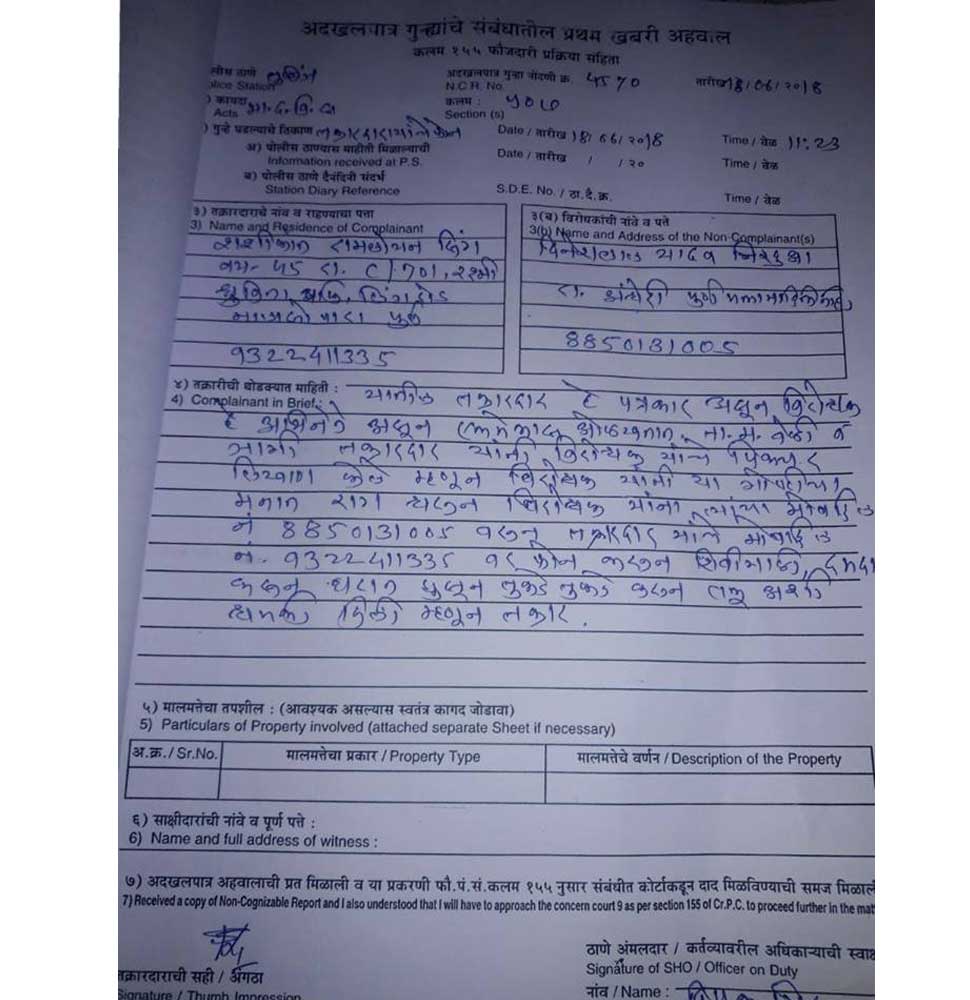 अदखलपात्र गुन्ह्यांचे संबंधातील प्रथम खबरी अहवाल
कलम १५५ फौजदारी प्रक्रिया संहिता
लीस ठाणे
olice Station
अदखलपात्र गुन्हा नोंदणी क्र. 4570
N.C.R. No.
तारीख 18/06/2018
) कायदा भा. द. वि. स
Acts
कलम : 507
Section (s)
) गुन्हे घडल्याचे ठिकाण
Date / तारीख 18 06/2018
Time / वेळ 11:23
अ) पोलीस ठाण्यास माहीती मिळाल्याची
Information received at P.S.
Date / तारीख / /२०
Time / वेळ
ब) पोलीस ठाणे दैनंदिनी संदर्भ
Station Diary Reference
S.D.E. No. / ठा.दै.क्र.
Time / वेळ
३) तक्रारदाराचे नांव व राहण्याचा पत्ता
3) Name and Residence of Complainant
शशीकांत रामलोचन सिंग
वय- 45 रा. C/701,
9322411335
३(ब) विरोधकांची नांवे व पत्ते
3(b) Name and Address of the Non-Complainant(s)
दिनेशलाल यादव निरहुआ
रा. अंधेरी
8850131005
४) तक्रारीची थोडक्यात माहिती :
4) Complainant in Brief :
यातील तक्रारदार हे पत्रकार असून विरोधक
हे अभिनेते असून ओळखतात. ता. म. वेळी व
जागी तक्रारदार यांनी विरोधक यांचे
लिखाण केले म्हणून विरोधक यांनी या गोष्टीचा
मनात राग धरून विरोधक यांनी त्यांचा मोबाईल
नं 8850131005 वरून तक्रारदार यांचे मोबाईल
नं. 9322411335 वर फोन करून शिवीगाळ, दमदा
करून घरात घुसून तुकडे तुकडे करून टाकू अशी
धमकी दिली म्हणून तक्रार.
५) मालमत्तेचा तपशील : (आवश्यक असल्यास स्वतंत्र कागद जोडावा)
5) Particulars of Property involved (attached separate Sheet if necessary)
अ.क्र./ Sr.No.
मालमत्तेचा प्रकार / Property Type
मालमत्तेचे वर्णन / Description of the Property
६) साक्षीदारांची नांवे व पूर्ण पत्ते :
6) Name and full address of witness :
७) अदखलपात्र अहवालाची प्रत मिळाली व या प्रकरणी फौ.पं.सं.कलम १५५ नुसार संबंधीत कोर्टाकडून दाद मिळविण्याची समज मिळाली
7) Received a copy of Non-Cognizable Report and I also understood that I will have to approach the concern court 9 as per section 155 of Cr.P.C. to proceed further in the mat
तक्रारदाराची सही / अंगठा
Signature / Thumb Impression
ठाणे अंमलदार / कर्तव्यावरील अधिकाऱ्याची स्वाक्ष
Signature of SHO / Officer on Duty
नांव / Name :